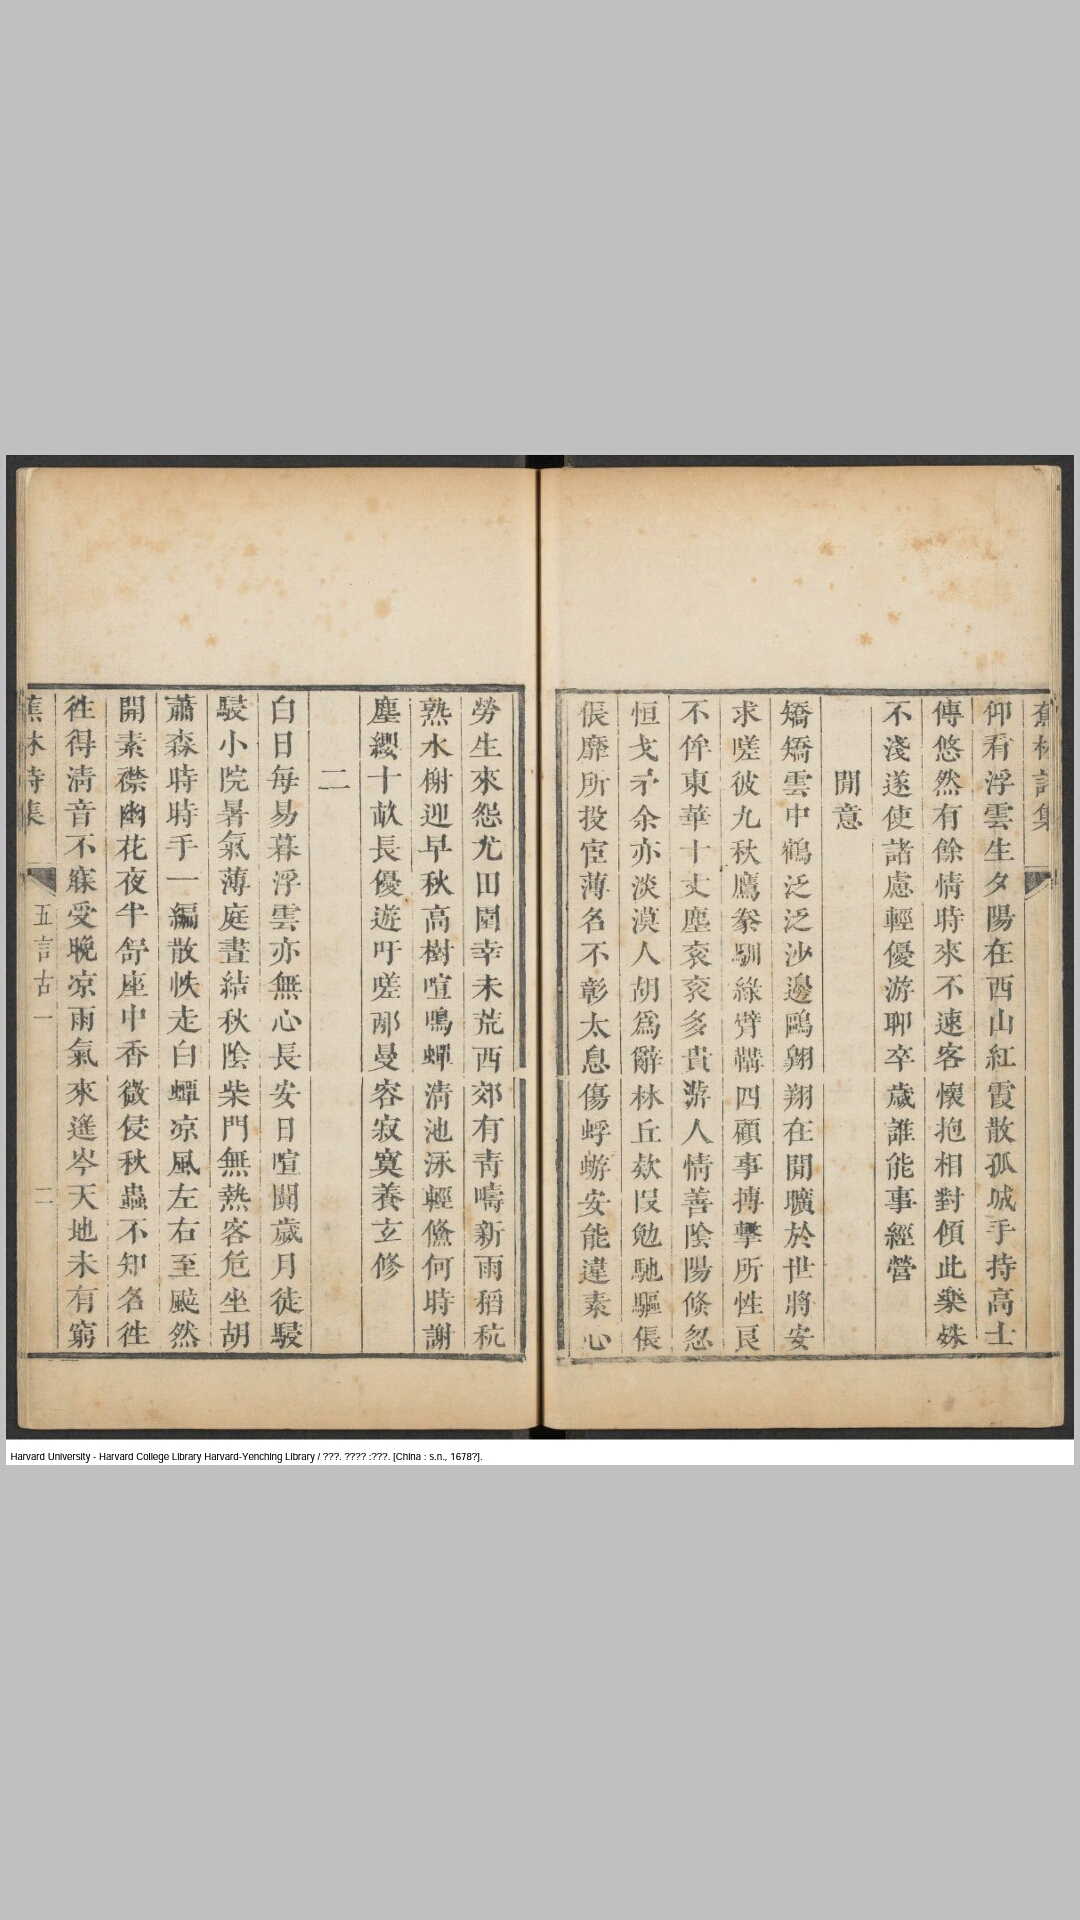 蕉林詩集
仰看浮雲生夕陽在西山紅霞散孤城手持高士
傳悠然有餘情時來不速客懷抱相對傾此樂殊
不淺遂使諸慮輕優游聊卒歲誰能事經營
閒意
矯矯雲中鶴泛泛沙邊鷗翱翔在閒曠於世將安
求嗟彼九秋鷹豢馴綠臂鞲四顧事搏擊所性良
不侔東華十丈塵衮衮多貴游人情善陰陽倏忽
恒戈矛余亦淡漠人胡爲辭林丘欻叚勉馳驅倀
倀靡所投宦薄名不彰太息傷蜉蝣安能違素心
勞生來怨尤田園幸未荒西郊有青疇新雨稻秔
熟水榭迎早秋高樹喧鳴蟬清池泳輕鯈何時謝
塵纓十畝長優遊吁嗟邴曼容寂寞養玄修
二
白日每易暮浮雲亦無心長安日喧鬬歲月徒駸
駸小院暑氣薄庭晝結秋陰柴門無熱客危坐胡
蕭森時時手一編散帙走白蟫凉風左右至颯然
開素襟幽花夜半舒座中香微侵秋蟲不知名徃
徃得清音不寐受晚凉雨氣來遙岑天地未有窮
蕉林詩集
五言古一
二
Harvard University - Harvard College Library Harvard-Yenching Library / ???. ???? :???. [China : s.n., 1678?].